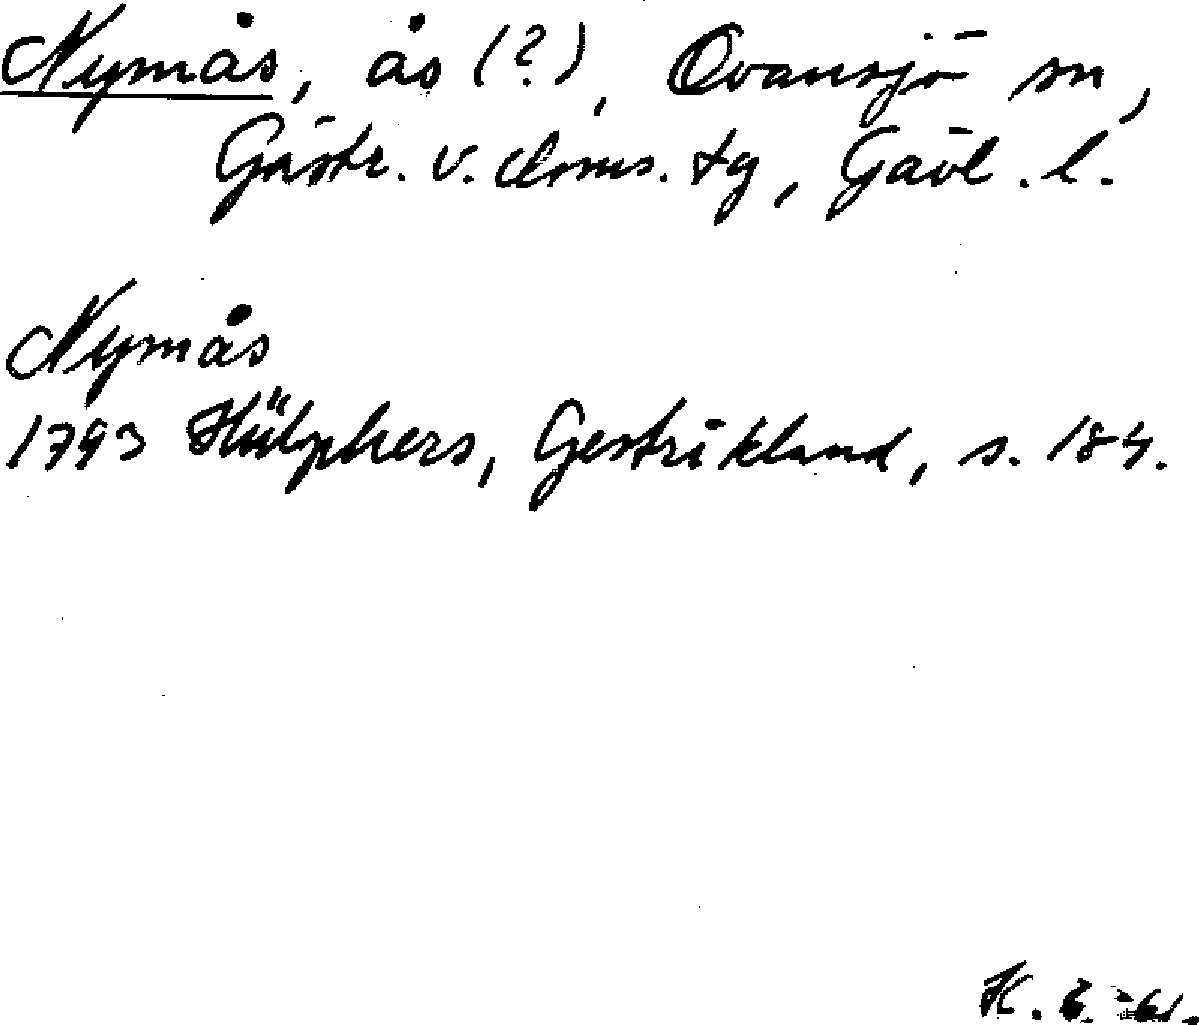 Nymås, ås (?), Ovansjö sn,
Gästr. v. doms. tg, Gävl. l.
Nymås
1793 Hülphers, Gestrikland, s. 184.